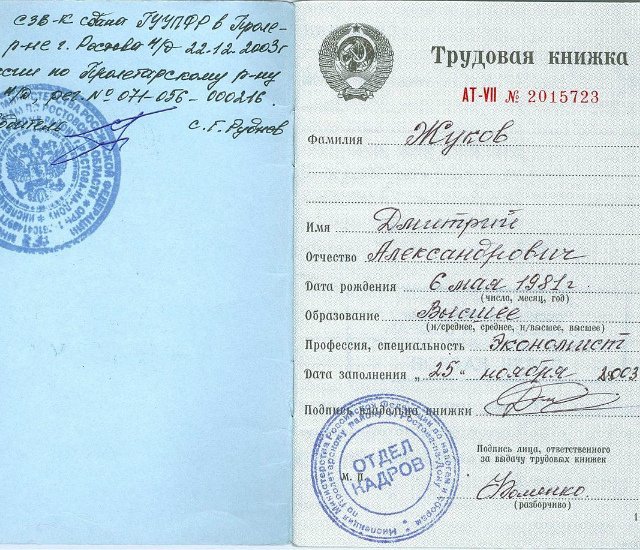 СЗВ-К сдана ГУУПФР в Проле-
р-не г. Ростова н/Д 22.12.2003г
ссии по Пролетарскому р-ну
н/Д рег. № 071-056-000216.
С.Г. Руднев
Трудовая книжка
АТ-VII № 2015723
Фамилия Жуков
Имя Дмитрий
Отчество Александрович
Дата рождения 6 мая 1981г.
(число, месяц, год)
Образование Высшее
(н/среднее, среднее, н/высшее, высшее)
Профессия, специальность Экономист
Дата заполнения „25“ ноября 2003
Подпись владельца книжки
Подпись лица, ответственного
за выдачу трудовых книжек
М. П.
Фоменко
(разборчиво)
ОТДЕЛ
КАДРОВ
1